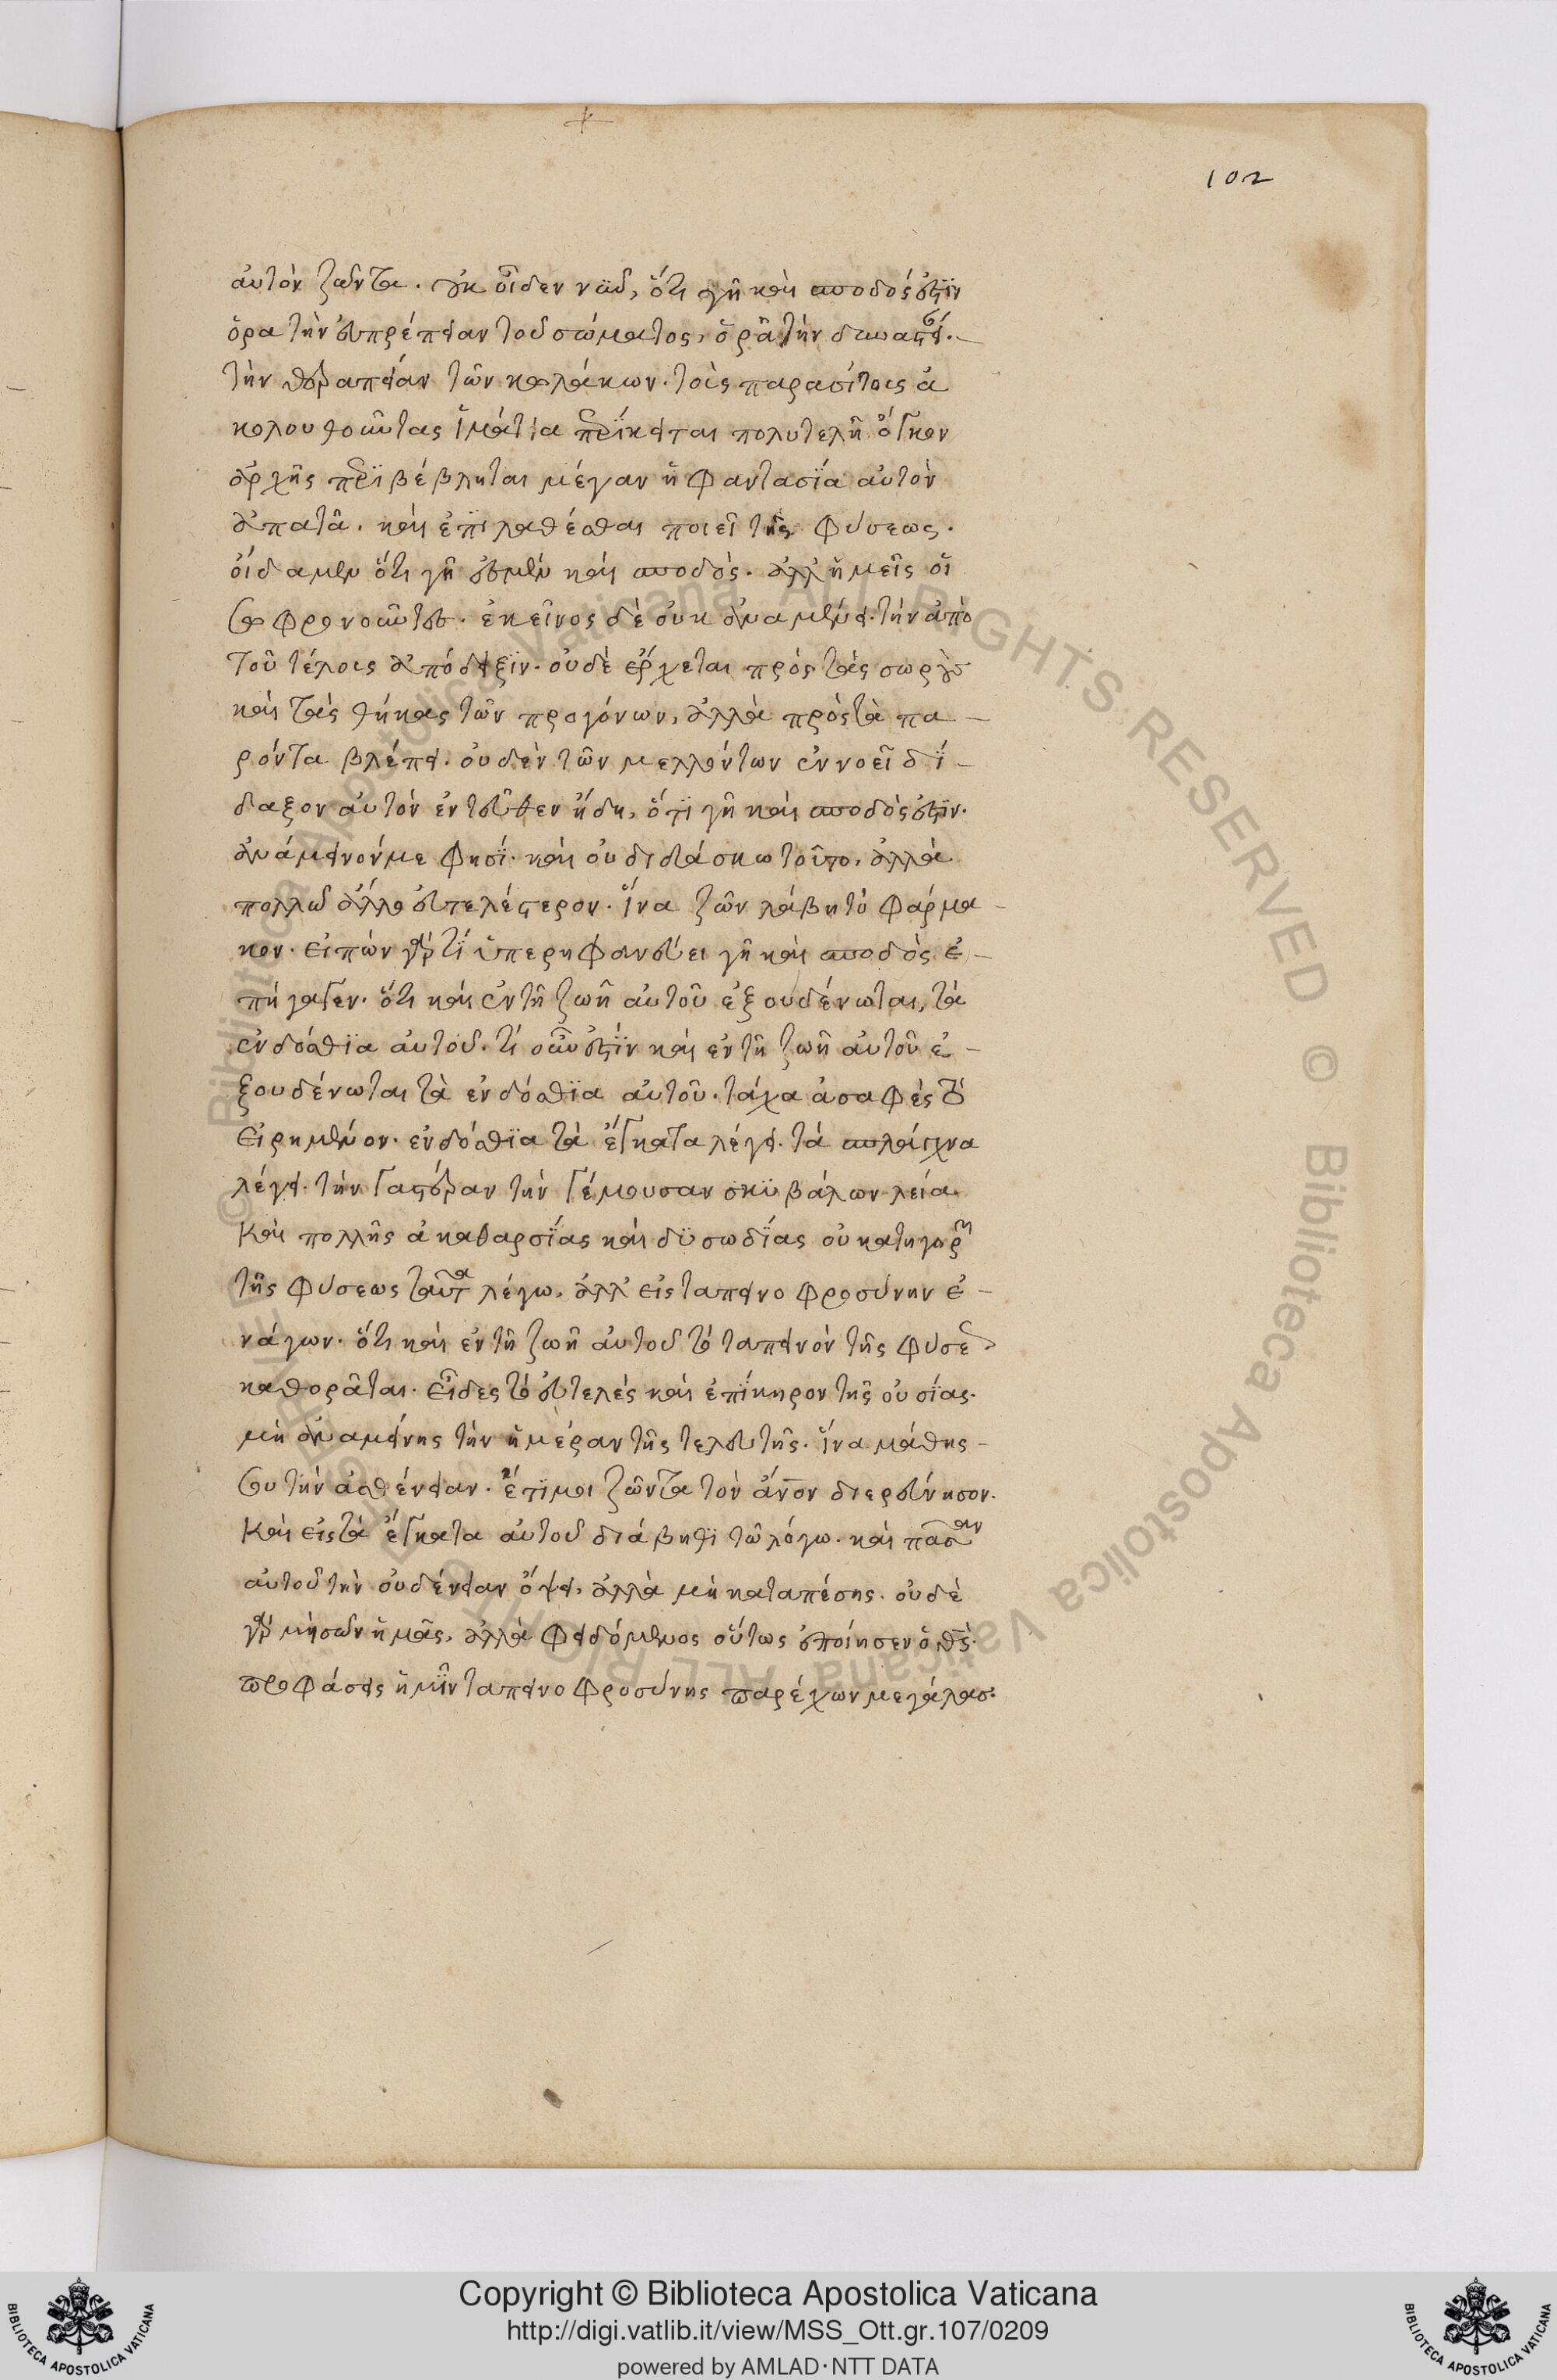 102
αὐτὸν ζῶντα. οὐκ οἶδεν νῦν, ὅτι γῆ καὶ σποδός ἐστϊν
ὅρα τὴν εὐπρέπειαν τοῦ σώματος, ὁρᾶ τὴν
τὴν θεραπείαν τῶν κολάκων. τοὺς παρασίτους ἀ
κολουθοῦντας ἱμάτια περΐκειται πολυτελῆ ὄγκον
ἀρχῆς περϊβέβληται μέγαν ἡ φαντασΐα αὐτὸν
ἀπατᾶ. καὶ ἐπϊλαθέσθαι ποιεῖ τῆς φύσεως.
οἴδαμεν ὅτι γῆ ἐσμὲν καὶ σποδὸς. ἀλλ' ἡμεῖς οἱ
σωφρονοῦντες. ἐκεῖνος δὲ οὐκ ἀναμένει. τὴν ἀπὸ
τοῦ τέλους ἀπόδειξϊν. οὐδὲ ἔρχεται πρὸς τὰς σωροὺς
καὶ τὰς θήκας τῶν προγόνων, ἀλλὰ πρὸς τὰ πα-
ρόντα βλέπει. οὐδὲν τῶν μελλόντων ἐννοεῖ δΐ-
δαξον αὐτὸν ἐντεῦθεν ἤδη, ὅτϊ γῆ καὶ σποδὸς ἐστϊν.
ἀνάμεινόν με φησΐ. καὶ οὐ διδάσκω τοῦτο, ἀλλὰ
πολλῶ ἄλλο εὐτελέστερον. ἵνα ζῶν λάβη τὸ φάρμα-
κον. εἰπὼν γὰρ τΐ ὑπερηφανεύει γῆ καὶ σποδὸς ἐ-
πήγαγεν. ὅτι καὶ ἐν τῆ ζωῆ αὐτοῦ ἐξουδένωται, τὰ
ἐνδόσθϊα αὐτοῦ. τί οὖν ἐστΐν καὶ ἐν τῆ ζωῆ αὐτοῦ ἐ-
ξουδένωται τὰ ἐνδόσθϊα αὐτοῦ. τάχα ἀσαφές τὸ
εἰρημένον. ἐνδόσθϊα τὰ ἔγκατα λέγει. τὰ σπλάγχνα
λέγει. τὴν γαστέραν τὴν γέμουσαν σκϋβάλων λεία
καὶ πολλῆς ἀκαθαρσΐας καὶ δϋσωδΐας οὐ κατηγορῶν
τῆς φύσεως ταῦτα λέγω, ἀλλ' εἰς ταπεινοφροσύνην ἐ-
νάγων. ὅτι καὶ ἐν τῆ ζωῆ αὐτοῦ τὸ ταπεινὸν τῆς φύσεως
καθορᾶται. εἶδες τὸ εὐτελὲς καὶ ἐπΐκηρον τῆς οὐσίας.
μὴ ἀναμείνης τὴν ἡμέραν τῆς τελευτῆς. ἵνα μάθης-
σου τὴν ἀσθένειαν. ἔτϊ μοι ζῶντα τὸν ἄνον διερεύνησον.
καὶ εἰς τὰ ἔγκατα αὐτοῦ διάβηθϊ τῶ λόγω. καὶ πᾶσαν
αὐτοῦ τὴν οὐδένειαν ὄψει, ἀλλὰ μὴ καταπέσης. οὐδὲ
γὰρ μησῶν ἡμᾶς, ἀλλὰ φειδόμενος οὕτως ἐποίησεν ὁ θς.
προφάσεις ἡμῖν ταπεινοφροσύνης παρέχων μεγάλας.
Copyright © Biblioteca Apostolica Vaticana
http://digi.vatlib.it/view/MSS_Ott.gr.107/0209
powered by AMLAD·NTT DATA